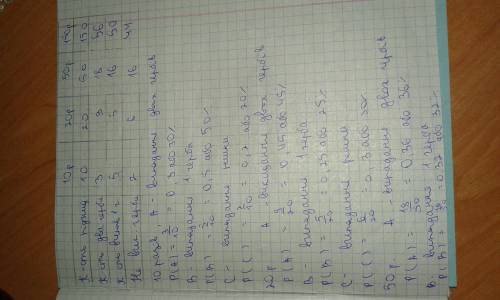 10р 20р 50р 150р
К-сть підкид 10 20 50 150
К-сть два герба 3 18 56
К-сть випав 1 5 5 16 50
Не вип герба 2 6 16 44
10 разів A - випадання двох гербів
P(A) = 3/10 = 0,3 або 30%
B - випадання 1 герба
P(B) = 5/10 = 0,5 або 50%
C - випадання решки
P(C) = 2/10 = 0,2 або 20%
20р A - випадання двох гербів
P(A) = 9/20 = 0,45 або 45%
B - випадання 1 герба
P(B) = 5/20 = 0,25 або 25%
C - випадання решки
P(C) = 6/20 = 0,3 або 30%
50р A - випадання двох гербів
P(A) = 18/50 = 0,36 або 36%
B - випадання 1 герба
P(B) = 16/50 = 0,32 або 32%